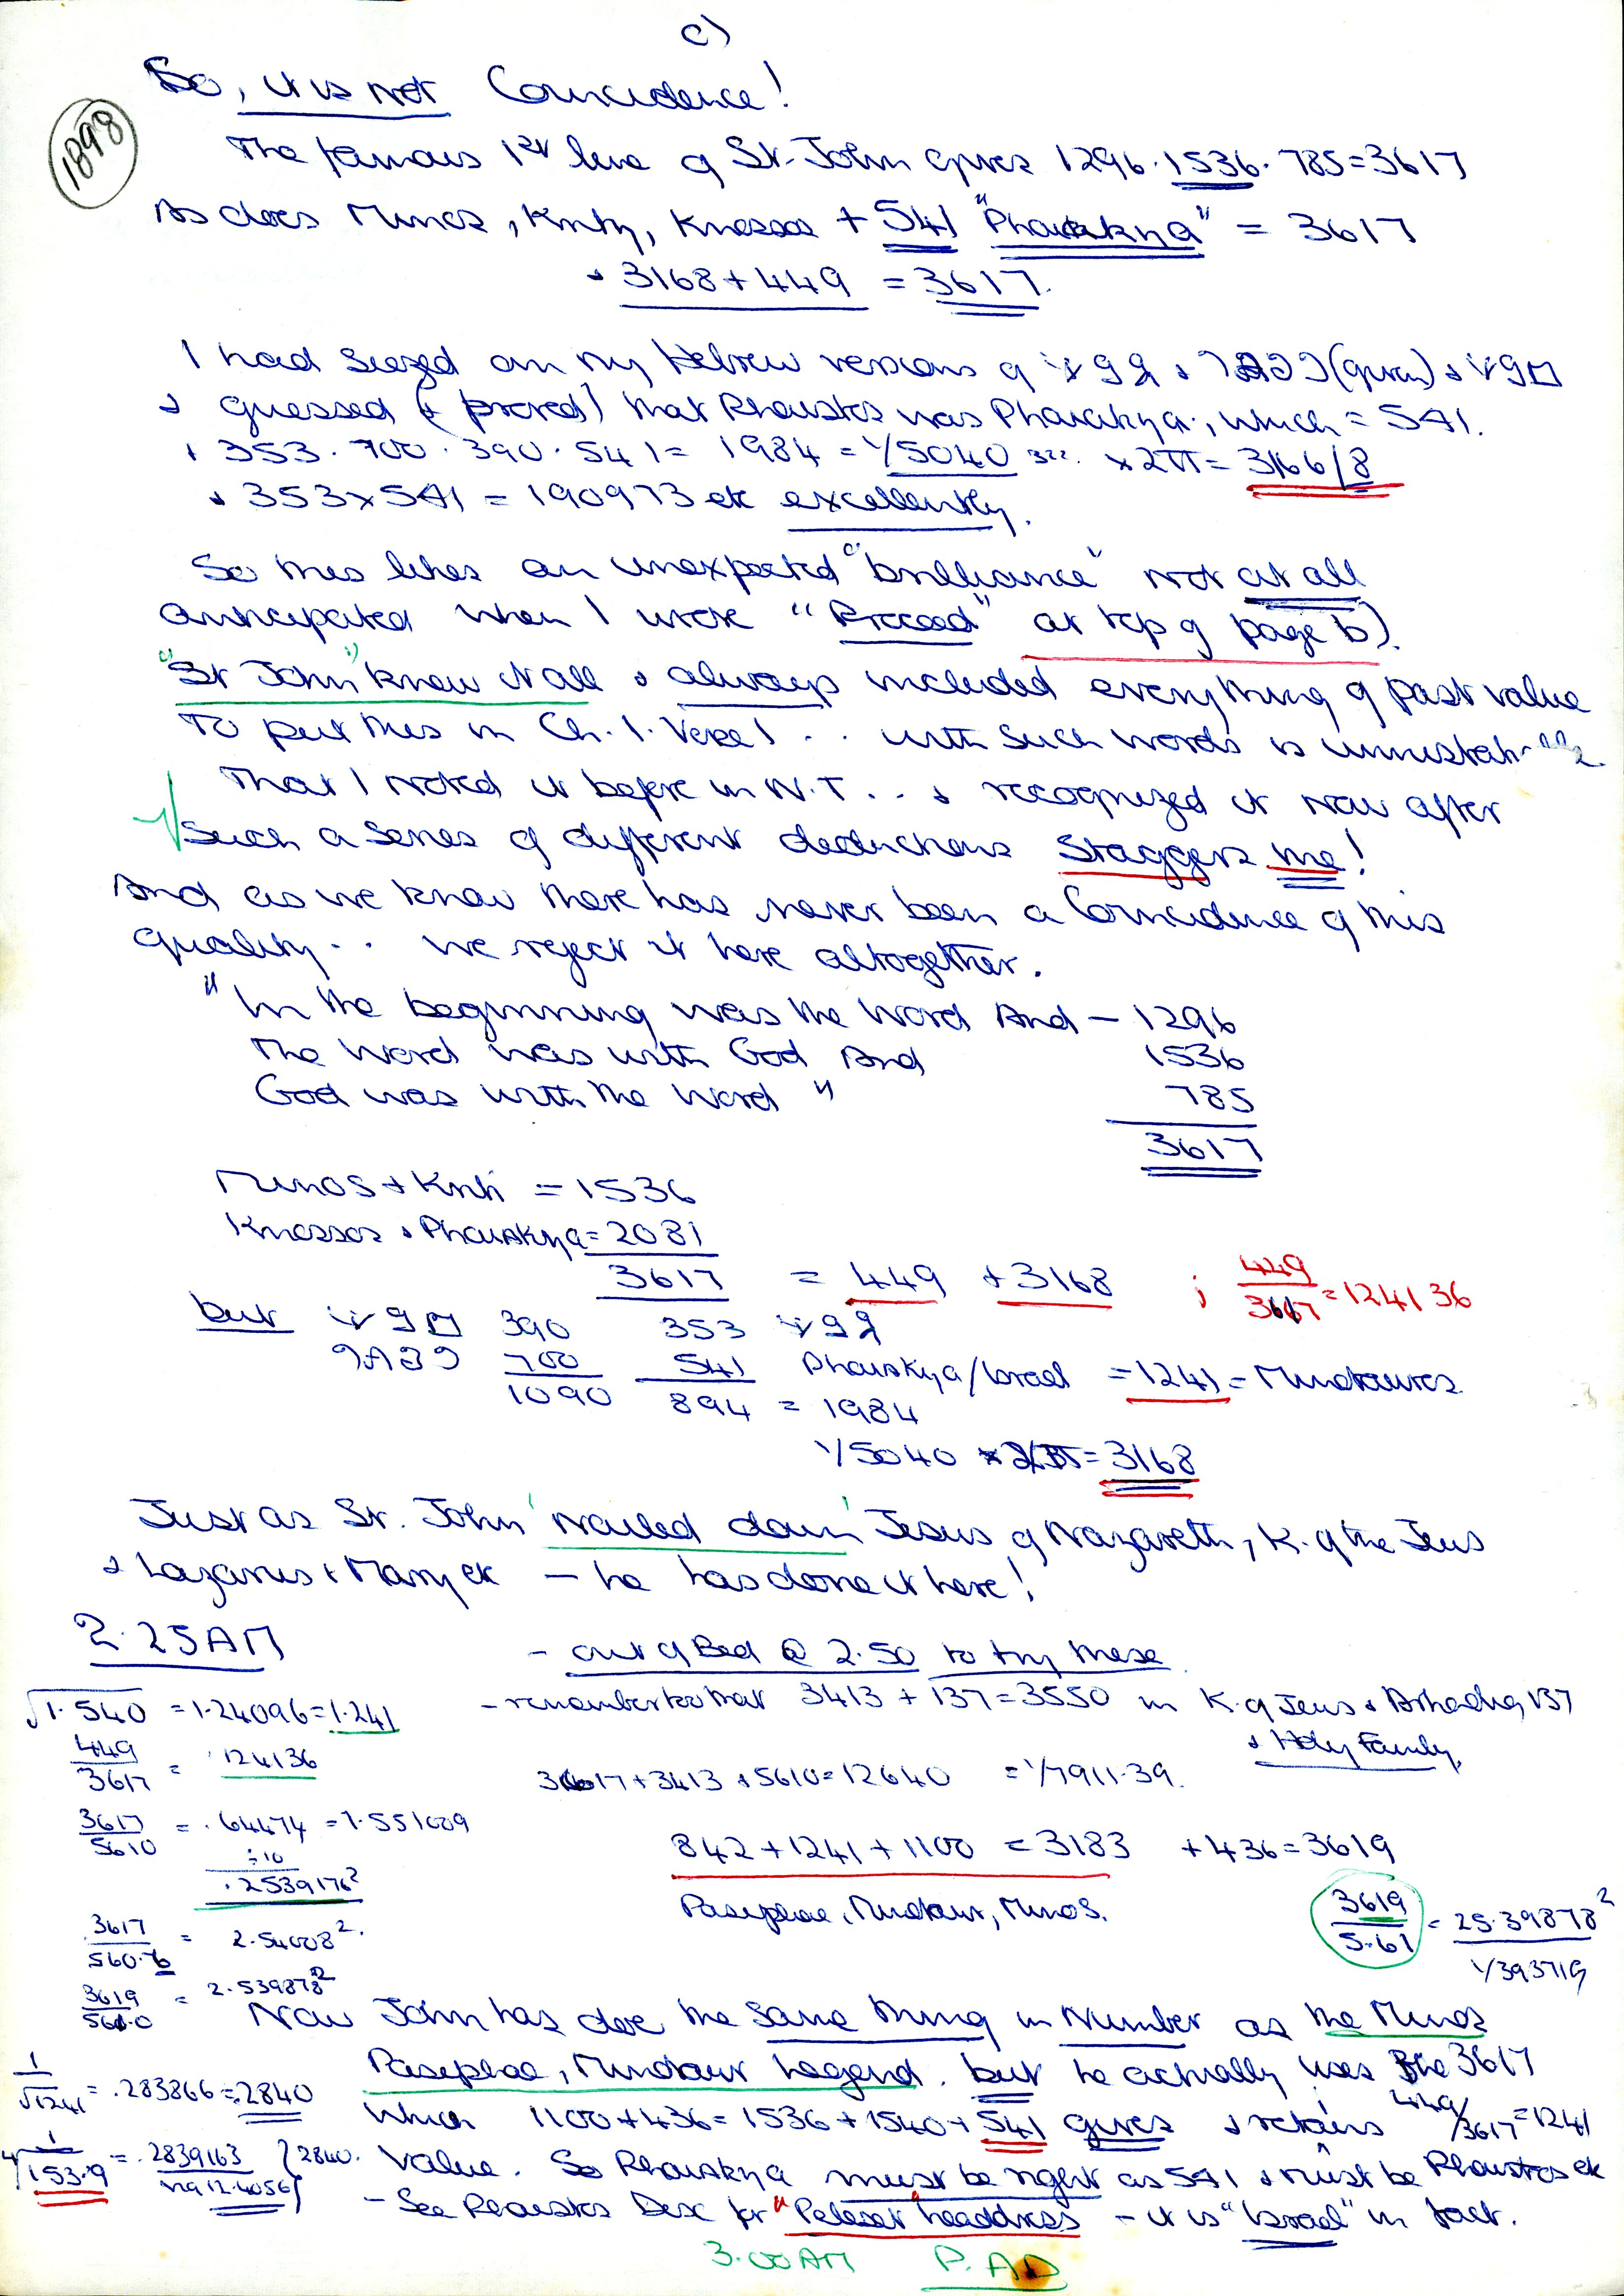 c)
So, it is not Coincidence!
1898
The famous 1st line of St. John gives 1296. 1536. 785 = 3617
As does Minos, Knty, Knossos + 541 "Phaiakya" = 3617
& 3168 + 449 = 3617.
I had seized on my Hebrew versions of (given) &
& guessed (& proved) that Phaistos was Phaiakya, which = 541.
& 353. 700. 390. 541 = 1984 = 1/5040 322. x2π = 3166/8
& 353 x 541 = 190973 etc excellently.
So this likes an unexpected "brilliance" not at all
anticipated when I wrote "Proceed" at top of page b).
"St John" knew it all & always included everything of past value
To put this in Ch. 1. Verse 1 .. with such words is
That I noted it before in N.T... & recognized it now after
such a series of different deductions Staggers me!
And as we know there has never been a Coincidence of this
quality .. we reject it here altogether.
"In the beginning was the Word And - 1296
The Word was with God And 1536
God was with the Word" 785
3617
Minos + Knti = 1536
Knossos & Phaiakya = 2081
3617 = 449 + 3168 ; 449/3617 = 124136
but 390 353
700 541 Phaiakya/Israel = 1241 = Minotauros
1090 894 = 1984
1/5040 x 2π = 3168
Just as St. John 'nailed down' Jesus of Nazareth, K. of the Jews
& Lazarus & Mary etc - he has done it here!
2.25AM - out of Bed @ 2.50 to try these
√1.540 = 1.24096 = 1.241 - remember too that 3413 + 137 = 3550 in K. of Jews & 137
& Holy Family.
449/3617 = .124136 3617 + 3413 + 5610 = 12640 = 1/7911.39.
3617/5610 = .64474 = 1.551009
÷10
.2539176²
842 + 1241 + 1100 = 3183 + 436 = 3619
Pasiphae, Minotaur, Minos.
3619/5.61 = 25.39878²
1/393719
3617/560.6 = 2.54008².
3619/561.0 = 2.539878²
Now John has done the same thing in Number as the Minos
Pasiphae, Minotaur Legend. but he actually uses the 3617
1/√1241 = .283866 = 2840
which 1100 + 436 = 1536 + 1540 + 541 gives & retains 449/3617 = 1241
4√1/153.9 = .2839163 } 2840.
value. So Phaiakya must be right as 541 & must be Phaistos etc
- See Phaistos Disc for "Peleset headdress - it is "Israel" in fact.
3.00AM P.AD